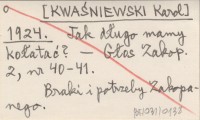 [KWAŚNIEWSKI Karol]
1924. Jak długo mamy
kołatać? — Głos Zakop.
2, nr 40-41.
Braki i potrzeby Zakopa-
nego.